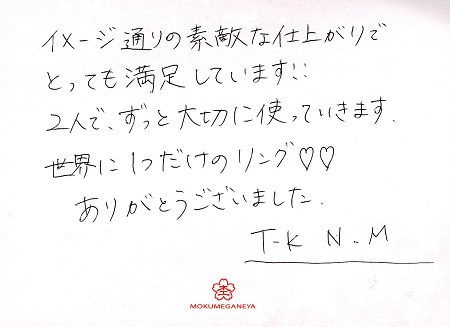 イメージ通りの素敵な仕上がりで
とっても満足しています!!
2人で、ずっと大切に使っていきます.
世界に1つだけのリング♡♡
ありがとうございました.
T-K N-M
MOKUMEGANEYA